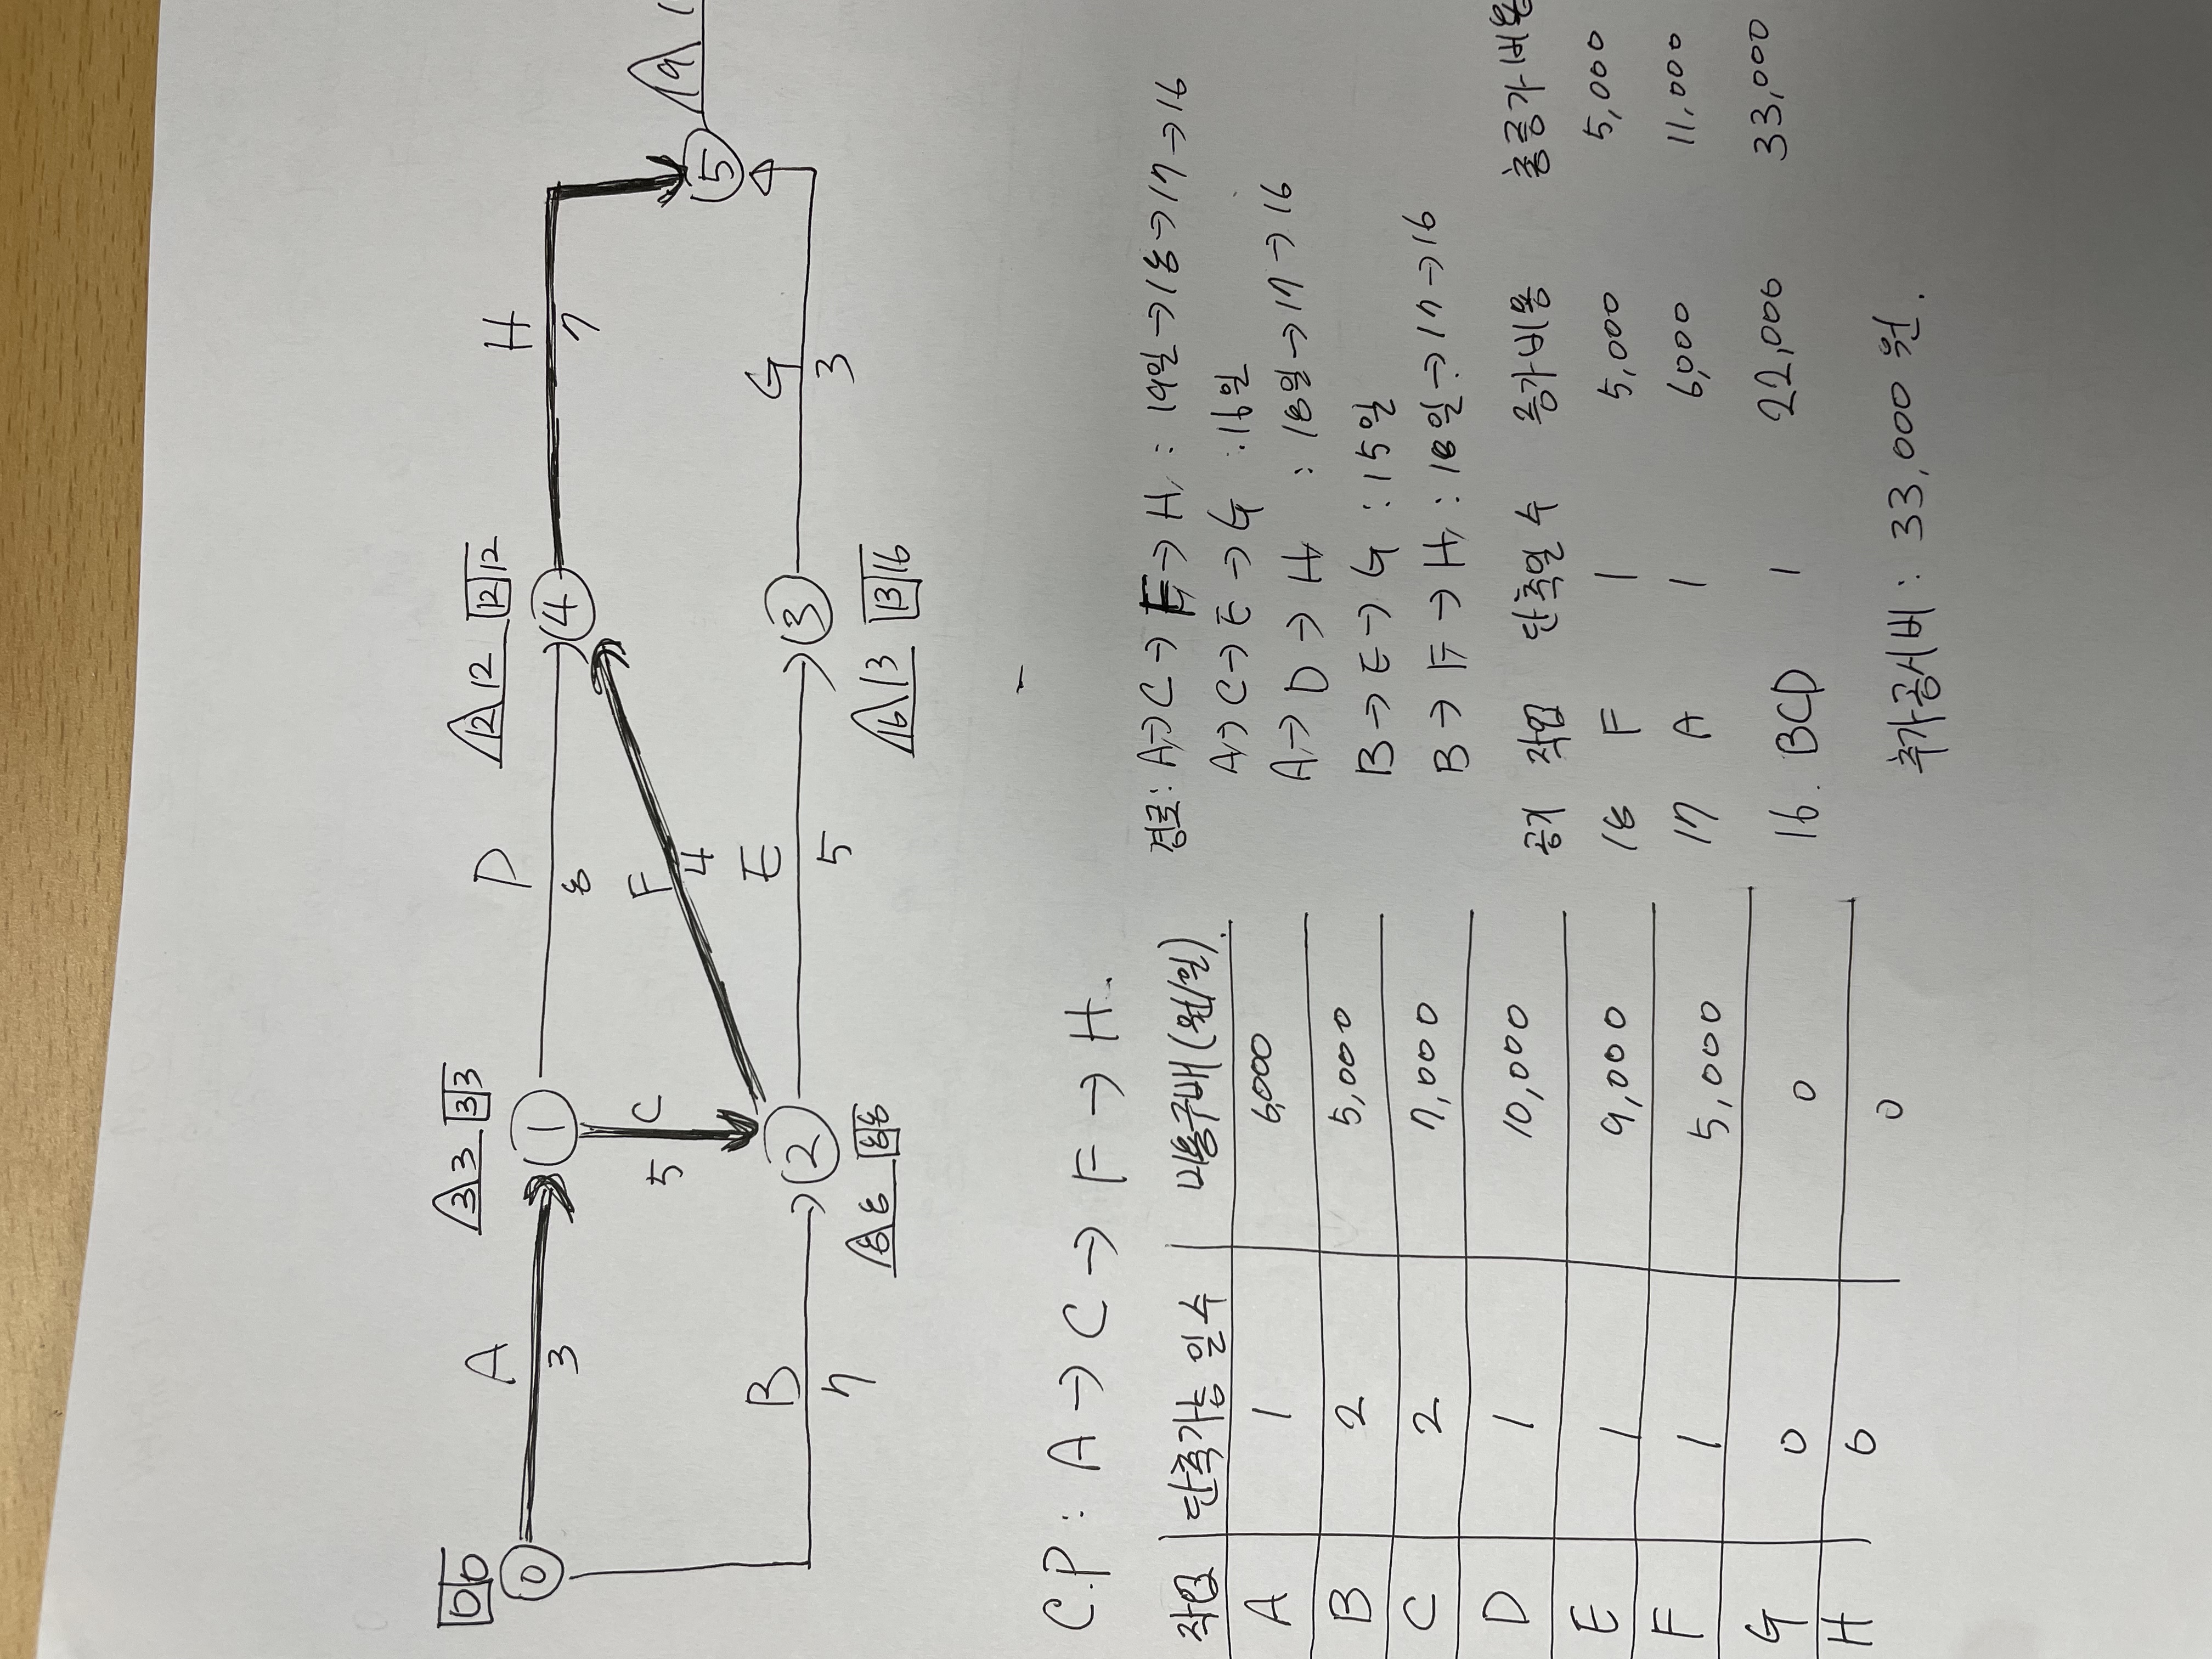 A
3
D
8
H
7
C
5
F
4
B
7
E
5
G
3
0 0
3 3 3 3
12 12 12 12
8 8 8 8
16 13 13 16
19
0
1
2
3
4
5
C.P : A → C → F → H.
작업 단축가능 일수 비용구배(원/일)
A 1 6,000
B 2 5,000
C 2 7,000
D 1 10,000
E 1 9,000
F 1 5,000
G 0 0
H 0 0
경로: A → C → F → H : 19일 → 18 → 17 → 16
A → C → E → G : 16일
A → D → H : 18일 → 17 → 16
B → E → G : 15일
B → F → H : 18일 → 17 → 16
공기 작업 단축일 수 증가비용 총증가비용
18 F 1 5,000 5,000
17 A 1 6,000 11,000
16. BCD 1 22,000 33,000
추가공사비 : 33,000 원.